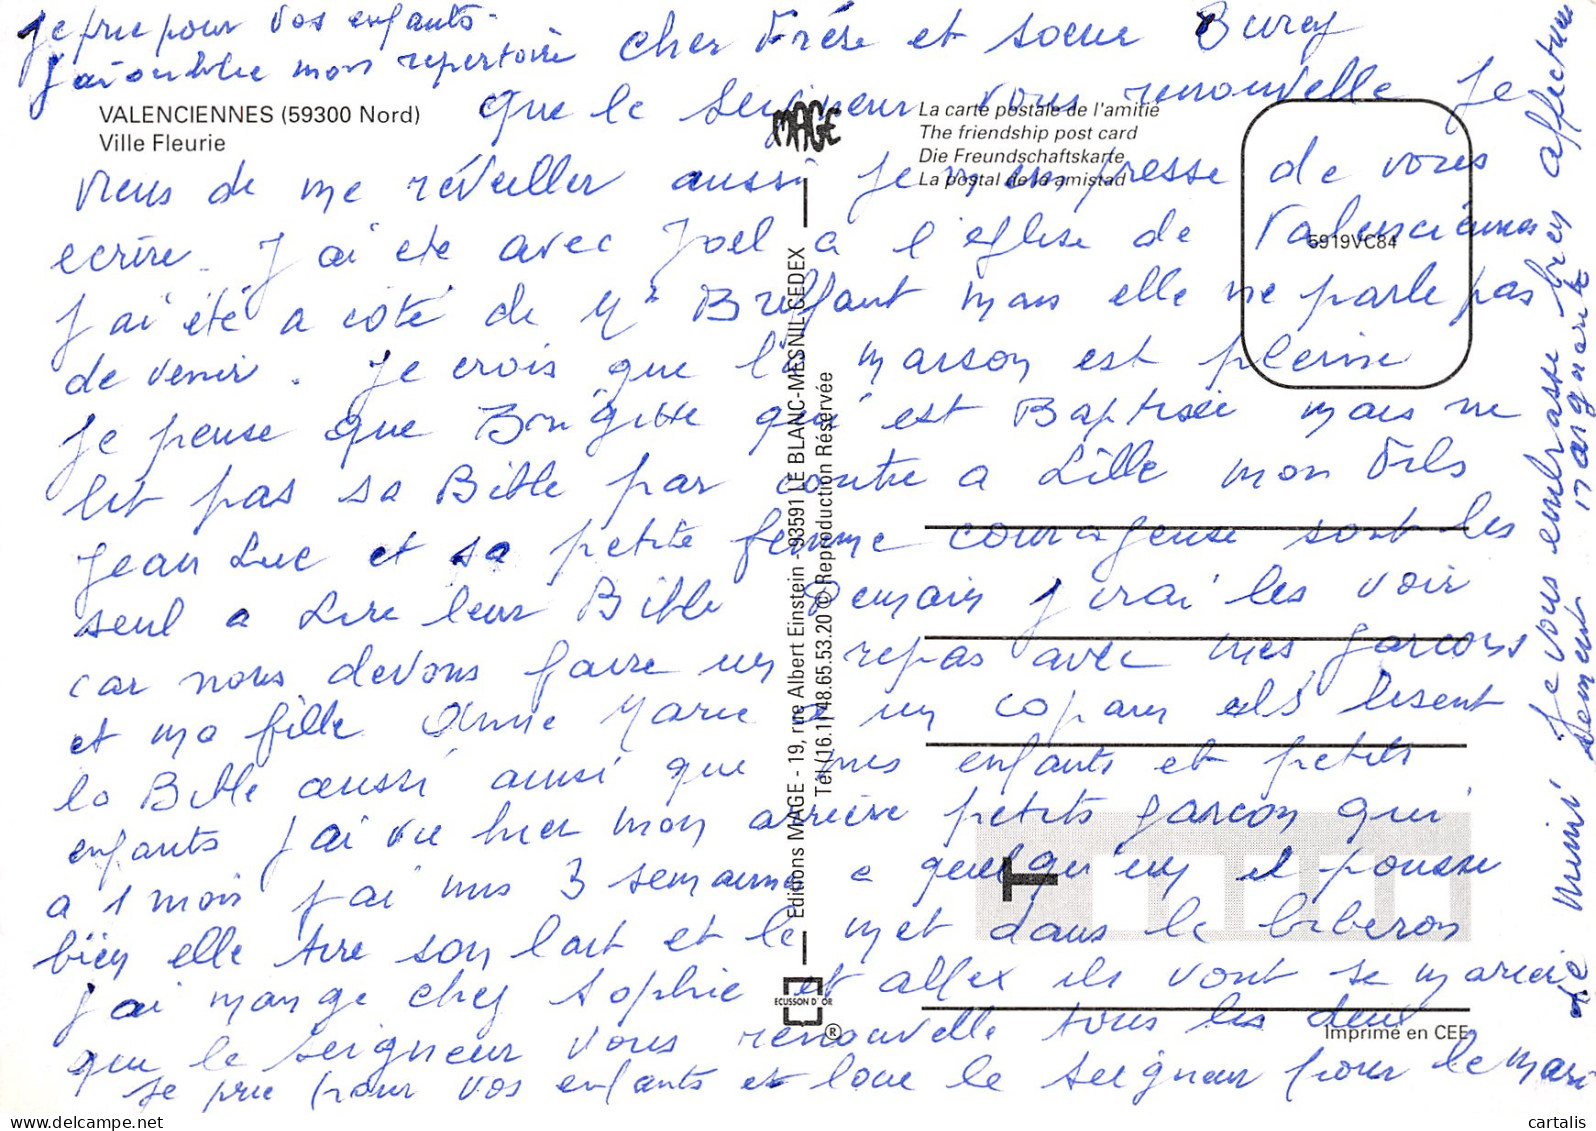 Je prie pour vos enfants.
J'ai oublie mon repertoire Cher Frére et soeur Burey
VALENCIENNES (59300 Nord)
Ville Fleurie
que le seigneur vous renouvelle Je
MAGE
La carte postale de l'amitié
The friendship post card
Die Freundschaftskarte
La postal de la amistad
viens de me réveiller aussi je m'empresse de vous
ecrire. J'ai ete avec Joel a l'eglise de Valenciennes
5919VC84
J'ai été a coté de Me mais elle ne parle pas
de venir. Je crois que la maison est pleine
Je pense que Brigitte qui est Baptisée mais ne
lit pas sa Bible par contre a Lille mon Fils
Jean Luc et sa petite femme courageuse sont les
seul a Lire leur Bible Demain j'irai les voir
car nous devons faire un repas avec mes garcons
et ma fille Anne Marie a un copain ils lisent
la Bible aussi ainsi que mes enfants et petits
enfants J'ai vu hier mon arrière petits garcon qui
a 1 mois j'ai mis 3 semaines a quelqu'un il pousse
bien elle tire son lait et le met dans le biberon
J'ai mange chez Sophie et Allex ils vont se marier
que le seigneur vous renouvelle tous les deux
je prie pour vos enfants et loue le seigneur pour le mari
de Mimi Je vous embrasse bien affectueu
sement Marguerite
Editions MAGE - 19, rue Albert Einstein - 93591 LE BLANC-MESNIL CEDEX
Tél (16.1) 48.65.53.20 © Reproduction Réservée
T
ECUSSON D'OR
®
Imprimé en CEE
cartalis